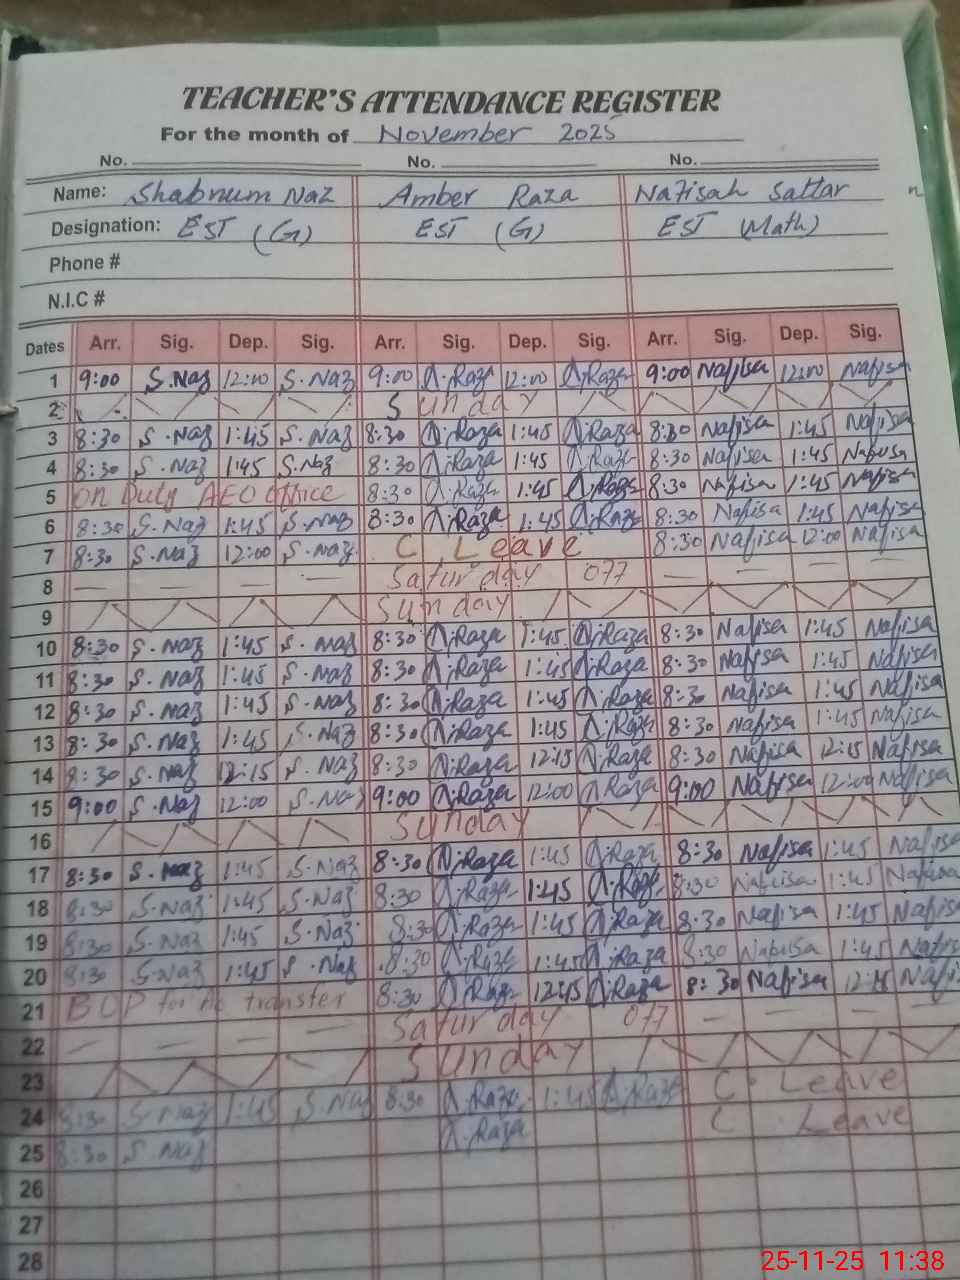 TEACHER'S ATTENDANCE REGISTER
For the month of November 2025
No. No. No.
Name: Shabnum Naz Amber Raza Nafisah Sattar
Designation: EST (G) EST (G) EST (Math)
Phone #
N.I.C #
Dates Arr. Sig. Dep. Sig. Arr. Sig. Dep. Sig. Arr. Sig. Dep. Sig.
1 9:00 S.Naz 12:00 S.Naz 9:00 A.Raza 12:00 A.Raza 9:00 Nafisa 12:00 Nafisa
2 Sunday
3 8:30 S.Naz 1:45 S.Naz 8:30 A.Raza 1:45 A.Raza 8:30 Nafisa 1:45 Nafisa
4 8:30 S.Naz 1:45 S.Naz 8:30 A.Raza 1:45 A.Raza 8:30 Nafisa 1:45 Nafisa
5 on Duty AEO office 8:30 A.Raza 1:45 A.Raza 8:30 Nafisa 1:45 Nafisa
6 8:30 S.Naz 1:45 S.Naz 8:30 A.Raza 1:45 A.Raza 8:30 Nafisa 1:45 Nafisa
7 8:30 S.Naz 12:00 S.Naz C. Leave 8:30 Nafisa 12:00 Nafisa
8 Saturday off
9 Sunday
10 8:30 S.Naz 1:45 S.Naz 8:30 A.Raza 1:45 A.Raza 8:30 Nafisa 1:45 Nafisa
11 8:30 S.Naz 1:45 S.Naz 8:30 A.Raza 1:45 A.Raza 8:30 Nafisa 1:45 Nafisa
12 8:30 S.Naz 1:45 S.Naz 8:30 A.Raza 1:45 A.Raza 8:30 Nafisa 1:45 Nafisa
13 8:30 S.Naz 1:45 S.Naz 8:30 A.Raza 1:45 A.Raza 8:30 Nafisa 1:45 Nafisa
14 8:30 S.Naz 12:15 S.Naz 8:30 A.Raza 12:15 A.Raza 8:30 Nafisa 12:15 Nafisa
15 9:00 S.Naz 12:00 S.Naz 9:00 A.Raza 12:00 A.Raza 9:00 Nafisa 12:00 Nafisa
16 Sunday
17 8:30 S.Naz 1:45 S.Naz 8:30 A.Raza 1:45 A.Raza 8:30 Nafisa 1:45 Nafisa
18 8:30 S.Naz 1:45 S.Naz 8:30 A.Raza 1:45 A.Raza 8:30 Nafisa 1:45 Nafisa
19 8:30 S.Naz 1:45 S.Naz 8:30 A.Raza 1:45 A.Raza 8:30 Nafisa 1:45 Nafisa
20 8:30 S.Naz 1:45 S.Naz 8:30 A.Raza 1:45 A.Raza 8:30 Nafisa 1:45 Nafisa
21 BOP for Ac transfer 8:30 A.Raza 12:15 A.Raza 8:30 Nafisa 12:15 Nafisa
22 Saturday off
23 Sunday
24 8:30 S.Naz 1:45 S.Naz 8:30 A.Raza 1:45 A.Raza C. Leave
25 8:30 S.Naz A.Raza C. Leave
26
27
28
25-11-25 11:38